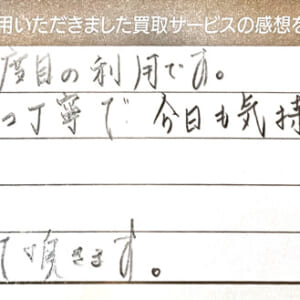 用いただきました買取サービスの感想を
度目の利用です。
つ丁寧で 今日も気持
て頂きます。